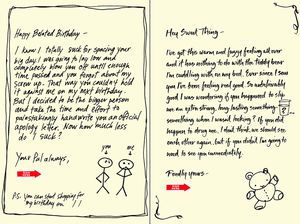 Happy Belated Birthday –
I know I totally suck for spacing your
big day! I was going to lay low and
completely blow you off until enough
time passed and you forgot about my
screw up. That way you couldn't hold
it against me on my next birthday.
But I decided to be the bigger person
and take the time and effort to
painstakingly handwrite you an official
apology letter. Now how much less
do I suck?
Your Pal always,
you
me
P.S. You can start shopping for
my birthday on
Hey Sweet Thing –
I've got this warm and fuzzy feeling all over
and it has nothing to do with the Teddy bear
I'm cuddling with in my bed. Ever since I saw
you I've been feeling real good. So unbelievably
good I was wondering if you happened to slip
me an extra strong, long lasting something
something when I wasn't looking? If you did
happen to drug me, I don't think we should see
each other again, but if you didn't I'm going to
need to see you immediately.
Fondly yours –